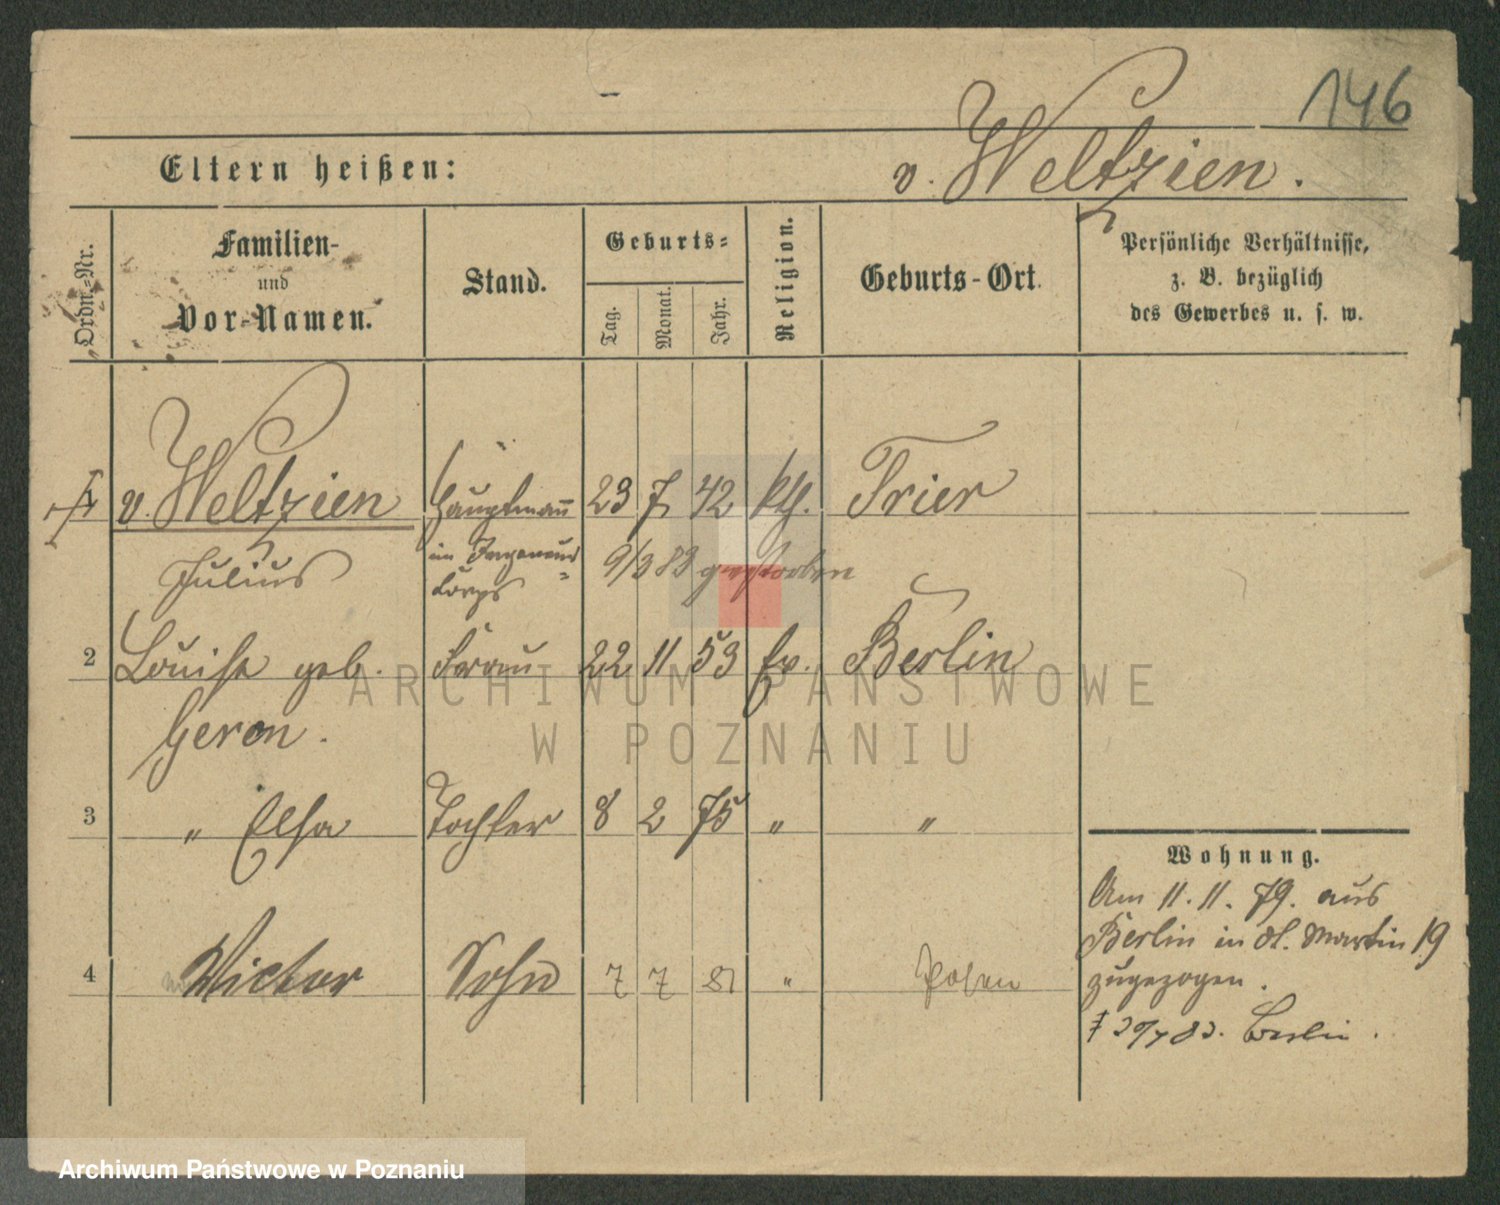 146
Eltern heißen: v. Weltzien.
Ordn.-Nr.
Familien-
und
Vor-Namen.
Stand.
Geburts-
Tag.
Monat.
Jahr.
Religion.
Geburts-Ort.
Persönliche Verhältnisse,
z. B. bezüglich
des Gewerbes u. s. w.
1 v. Weltzien Hauptmann 23 7 42 kth. Trier
Julius im Ingenieur- 9/3 83 gestorben
Corps
2 Louise geb. Frau 22 11 53 ev. Berlin
Geron.
3 " Elsa Tochter 8 2 75 " "
4 Victor Sohn 7 7 81 " Posen
Wohnung.
Am 11. 11. 79. aus
Berlin in St. Martin 19
zugezogen.
83. Berlin.
ARCHIWUM PAŃSTWOWE
W POZNANIU
Archiwum Państwowe w Poznaniu